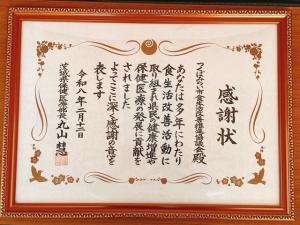 感謝状
つくばみらい市食生活改善推進協議会殿
あなたは多年にわたり
食生活改善活動に
取り組まれ県民の健康増進や
保健医療の発展に貢献を
されました
よってここに深く感謝の意を
表します
令和八年二月十二日
茨城県保健医療部長 丸山慧